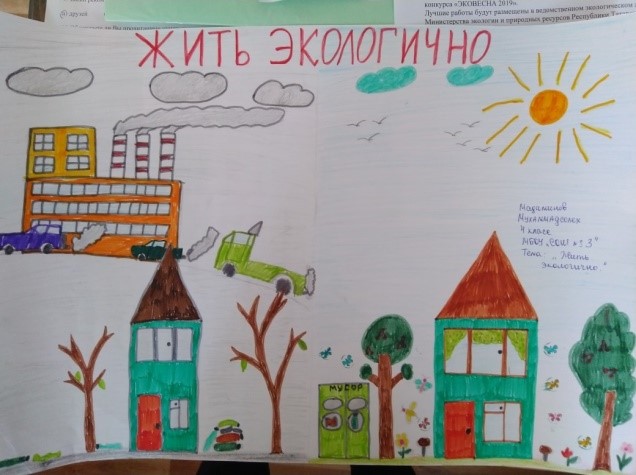 конкурса «ЭКОВЕСНА 2019».
Лучшие работы будут размещены в ведомственном экологическом
Министерства экологии и природных ресурсов Республики
друзей
ЖИТЬ ЭКОЛОГИЧНО
4 класс
МБОУ „СОШ №3"
Тема: „Жить
экологично."
МУСОР